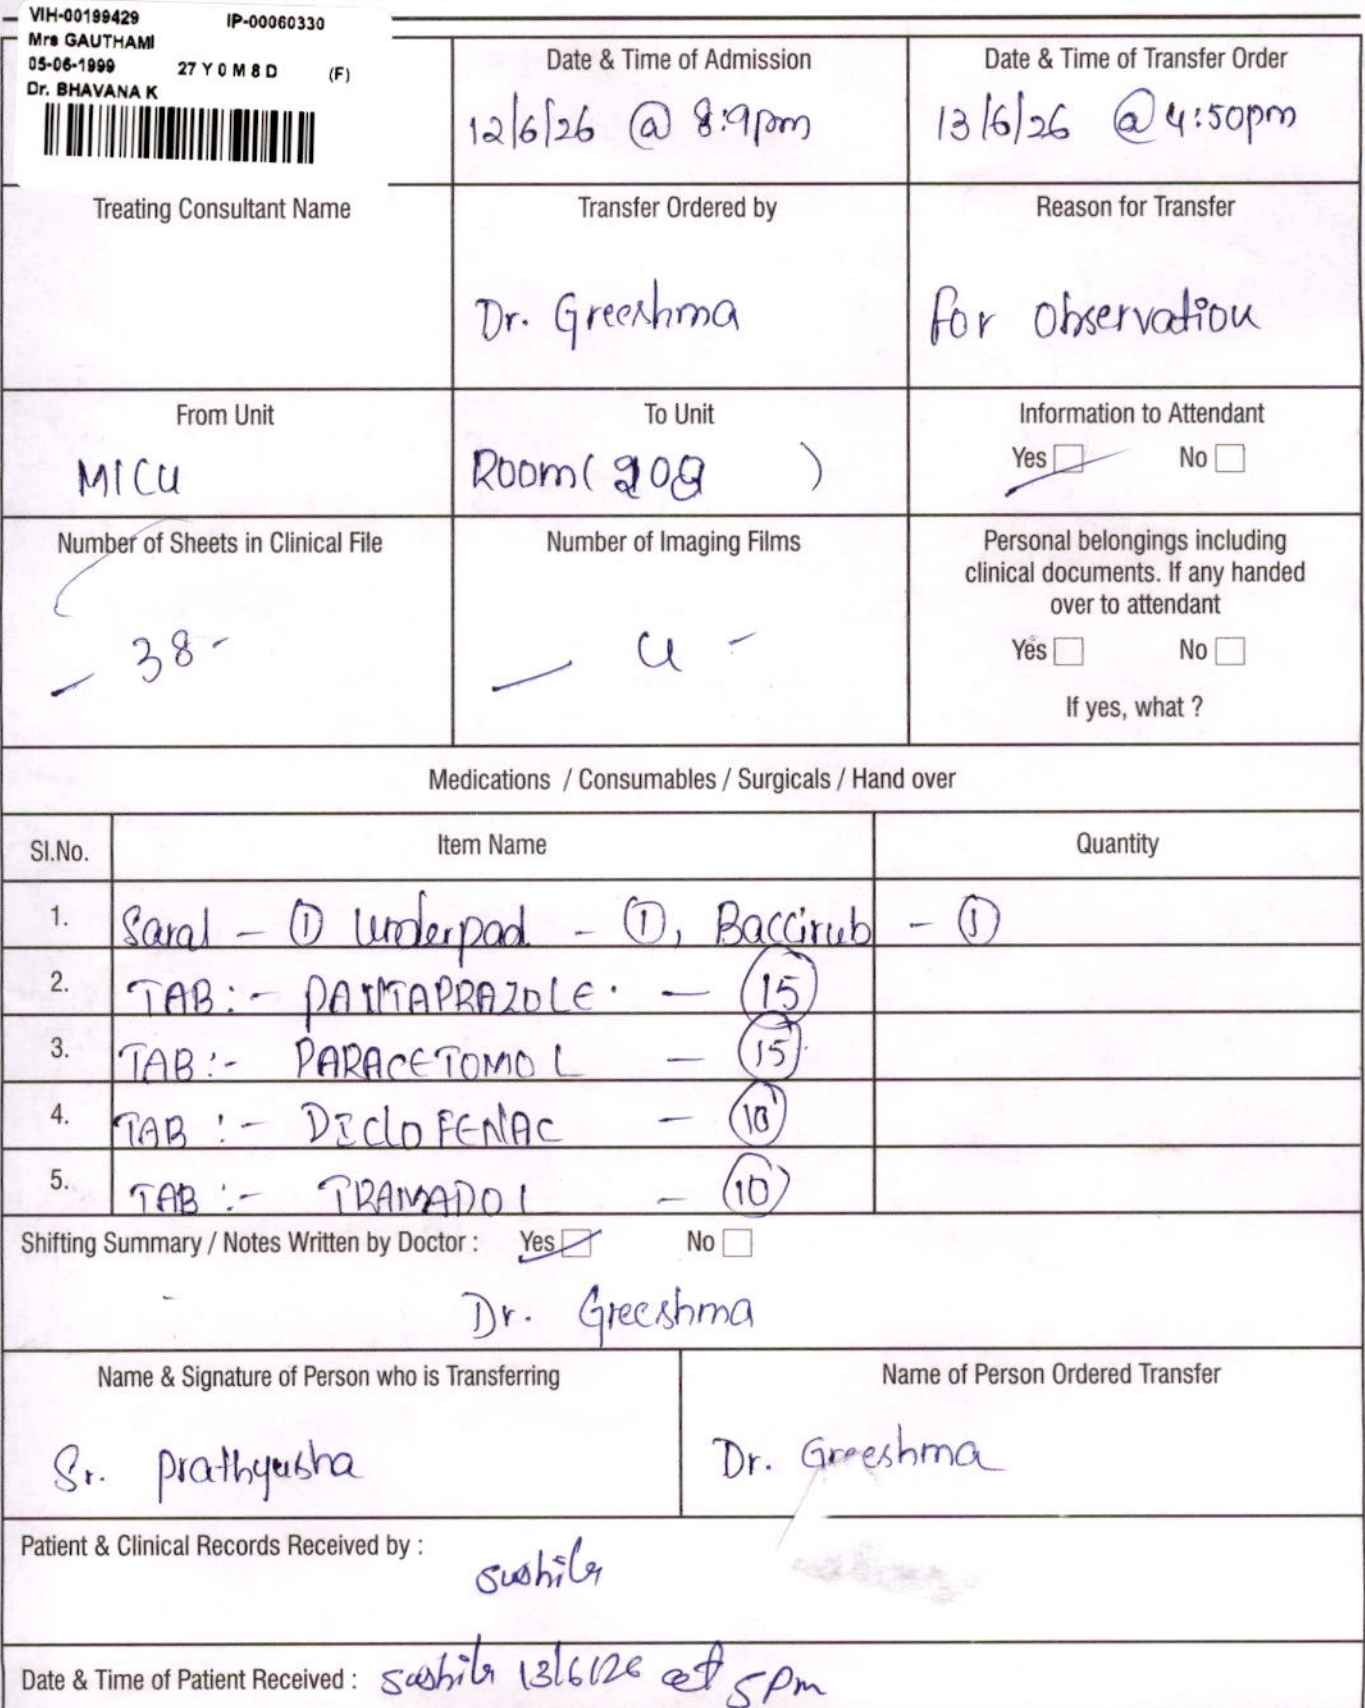 VIH-00199429 IP-00060330
Mrs GAUTHAMI
05-06-1999 27 Y 0 M 8 D (F)
Dr. BHAVANA K
Date & Time of Admission
12/6/26 @ 8:9pm
Date & Time of Transfer Order
13/6/26 @ 4:50pm
Treating Consultant Name
Transfer Ordered by
Dr. Greeshma
Reason for Transfer
for observation
From Unit
MICU
To Unit
Room( )
Information to Attendant
Yes No
Number of Sheets in Clinical File
- 38 -
Number of Imaging Films
Personal belongings including
clinical documents. If any handed
over to attendant
Yes No
If yes, what ?
Medications / Consumables / Surgicals / Hand over
Sl.No. Item Name Quantity
1. Saral - ① Underpad - ①, Baccirub - ①
2. TAB:- PANTAPRAZOLE. - 15
3. TAB:- PARACETOMOL - 15
4. TAB:- DICLOFENAC - 10
5. TAB:- TRAMADOL - 10
Shifting Summary / Notes Written by Doctor : Yes No
Dr. Greeshma
Name & Signature of Person who is Transferring
Sr. Prathyusha
Name of Person Ordered Transfer
Dr. Greeshma
Patient & Clinical Records Received by :
sushila
Date & Time of Patient Received : sushila 13/6/26 at 5pm